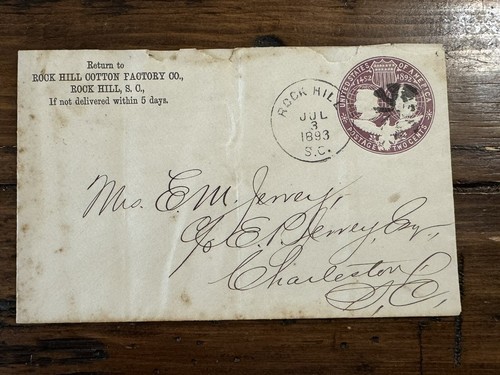 Return to
ROCK HILL COTTON FACTORY CO.,
ROCK HILL, S. C.,
If not delivered within 5 days.
ROCK HILL
JUL
3
1893
S.C.
UNITED STATES OF AMERICA
1492 1892
POSTAGE TWO CENTS
Mrs. E. M. Jervey,
c/o E. P. Jervey, Esq.,
Charleston,
S. C.,